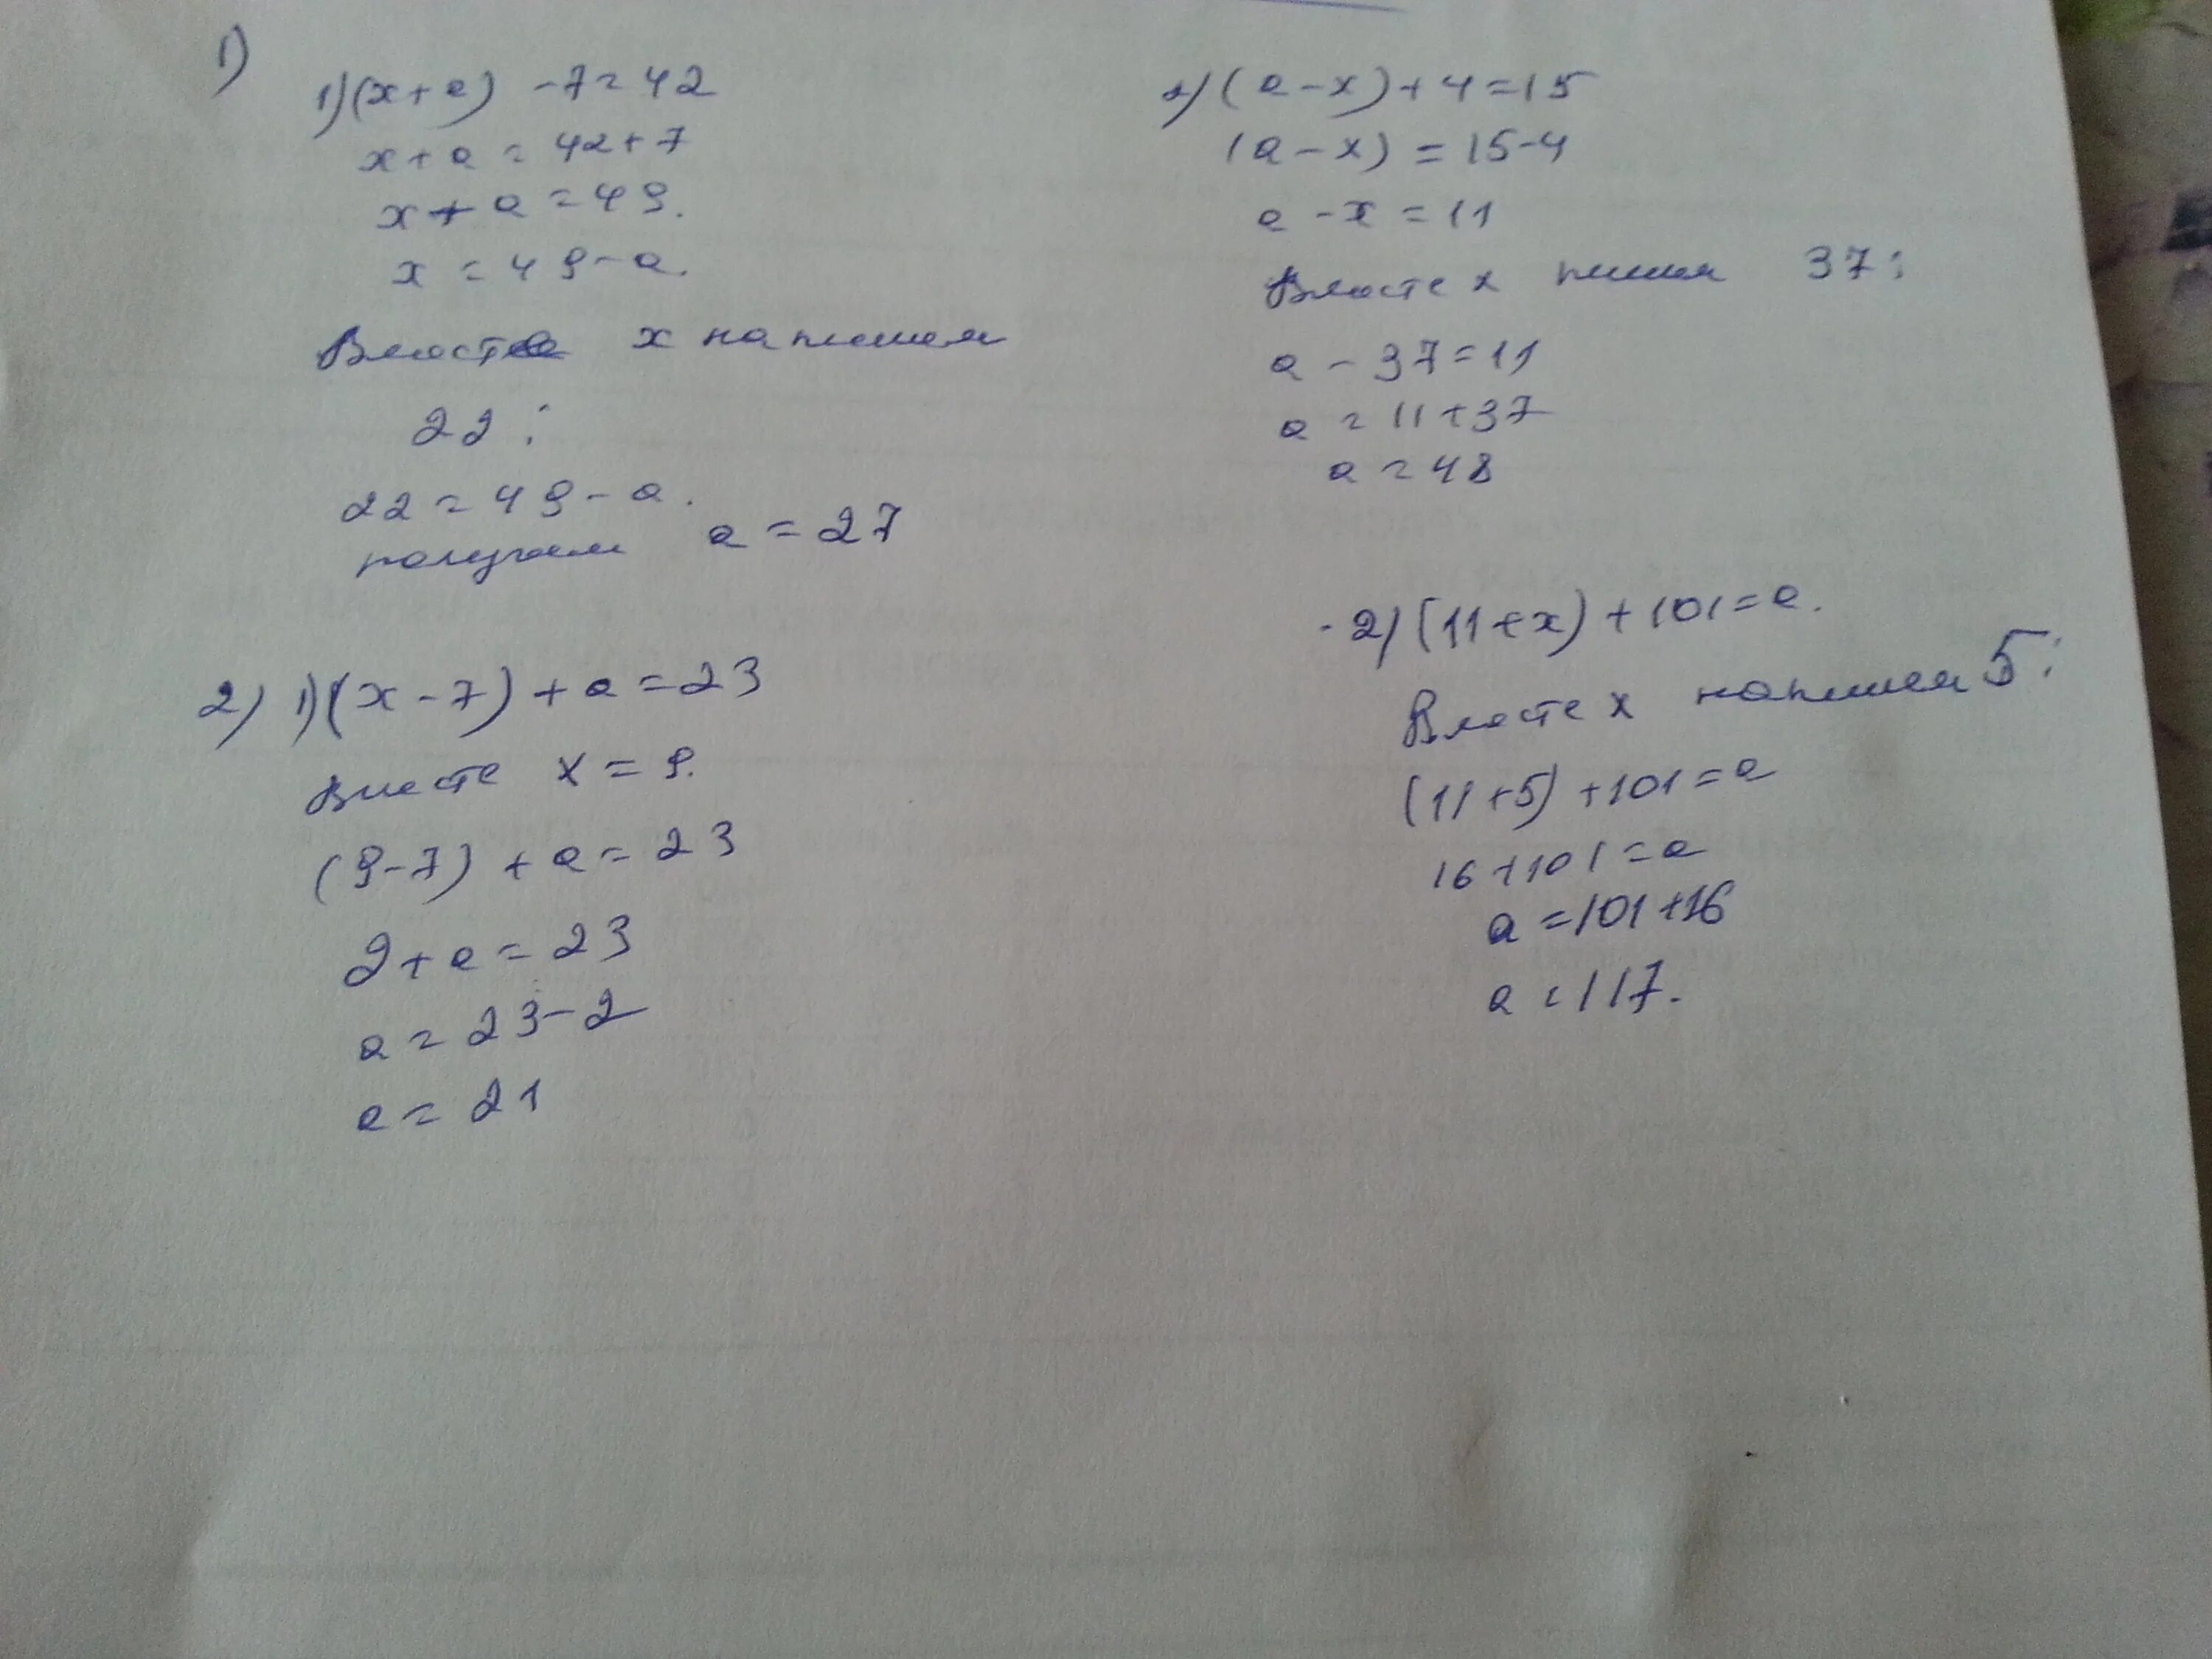 1)
1) (x+a) -7=42
x+a = 42+7
x+a = 49.
x = 49-a.
Вместо х напишем
22:
22 = 49-a.
получаем a = 27
2) (a-x)+4=15
(a-x) = 15-4
a-x = 11
Вместо х пишем 37:
a - 37 = 11
a = 11+37
a = 48
2) 1) (x-7) + a = 23
Вместо x = 9.
(9-7) + a = 23
2+a = 23
a = 23-2
a = 21
2) (11+x) + 101 = a.
Вместо х напишем 5:
(11+5) +101 = a
16+101 = a
a = 101+16
a = 117.